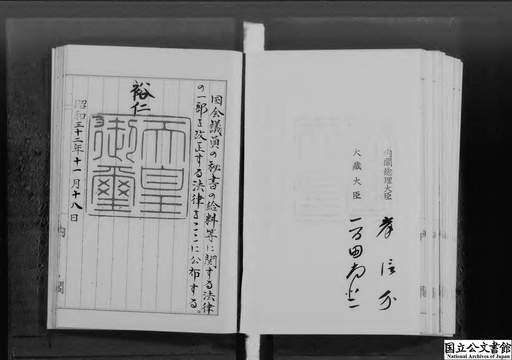 内閣総理大臣
岸信介
大蔵大臣
一万田尚登
国会議員の秘書の給料等に関する法律
の一部を改正する法律をここに公布する。
裕仁
天皇
御璽
昭和三十二年十一月十八日
内閣
国立公文書館
National Archives of Japan